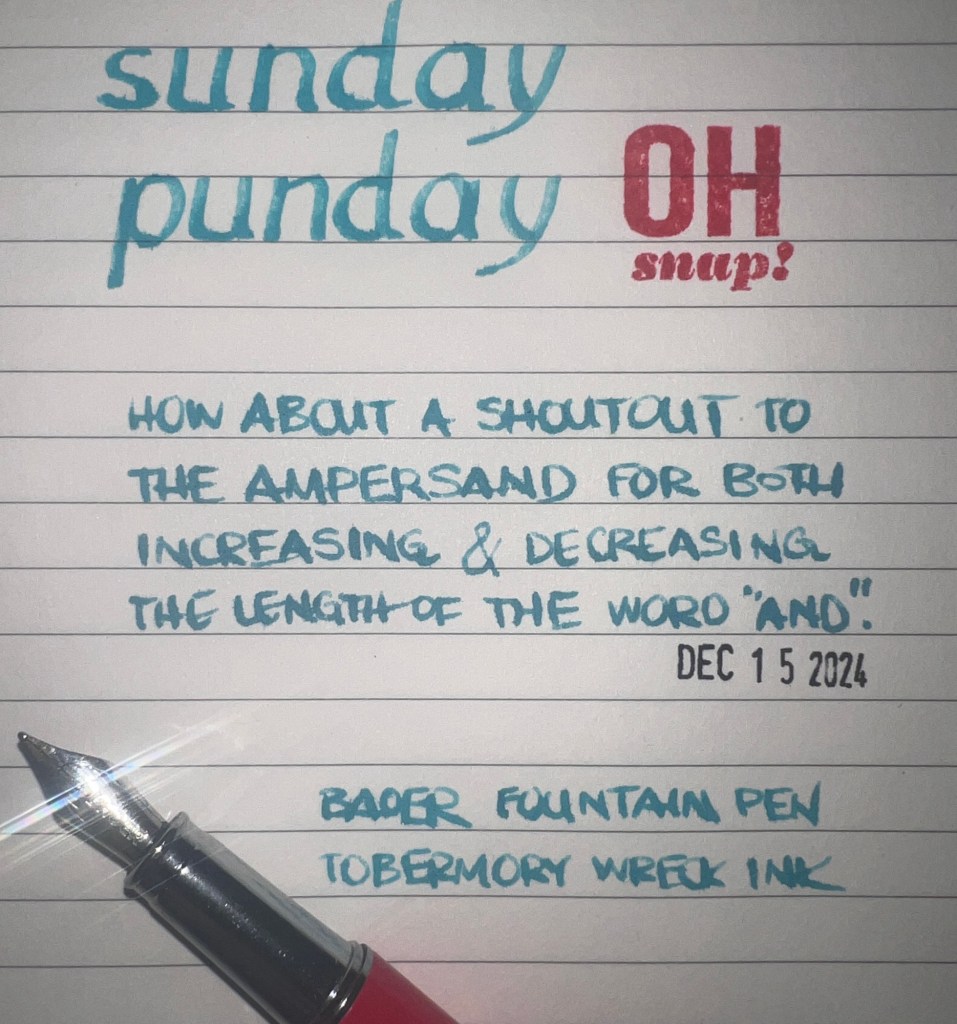 sunday
punday
OH
snap!
HOW ABOUT A SHOUTOUT TO
THE AMPERSAND FOR BOTH
INCREASING & DECREASING
THE LENGTH OF THE WORD "AND".
DEC 15 2024
BAOER FOUNTAIN PEN
TOBERMORY WRECK INK